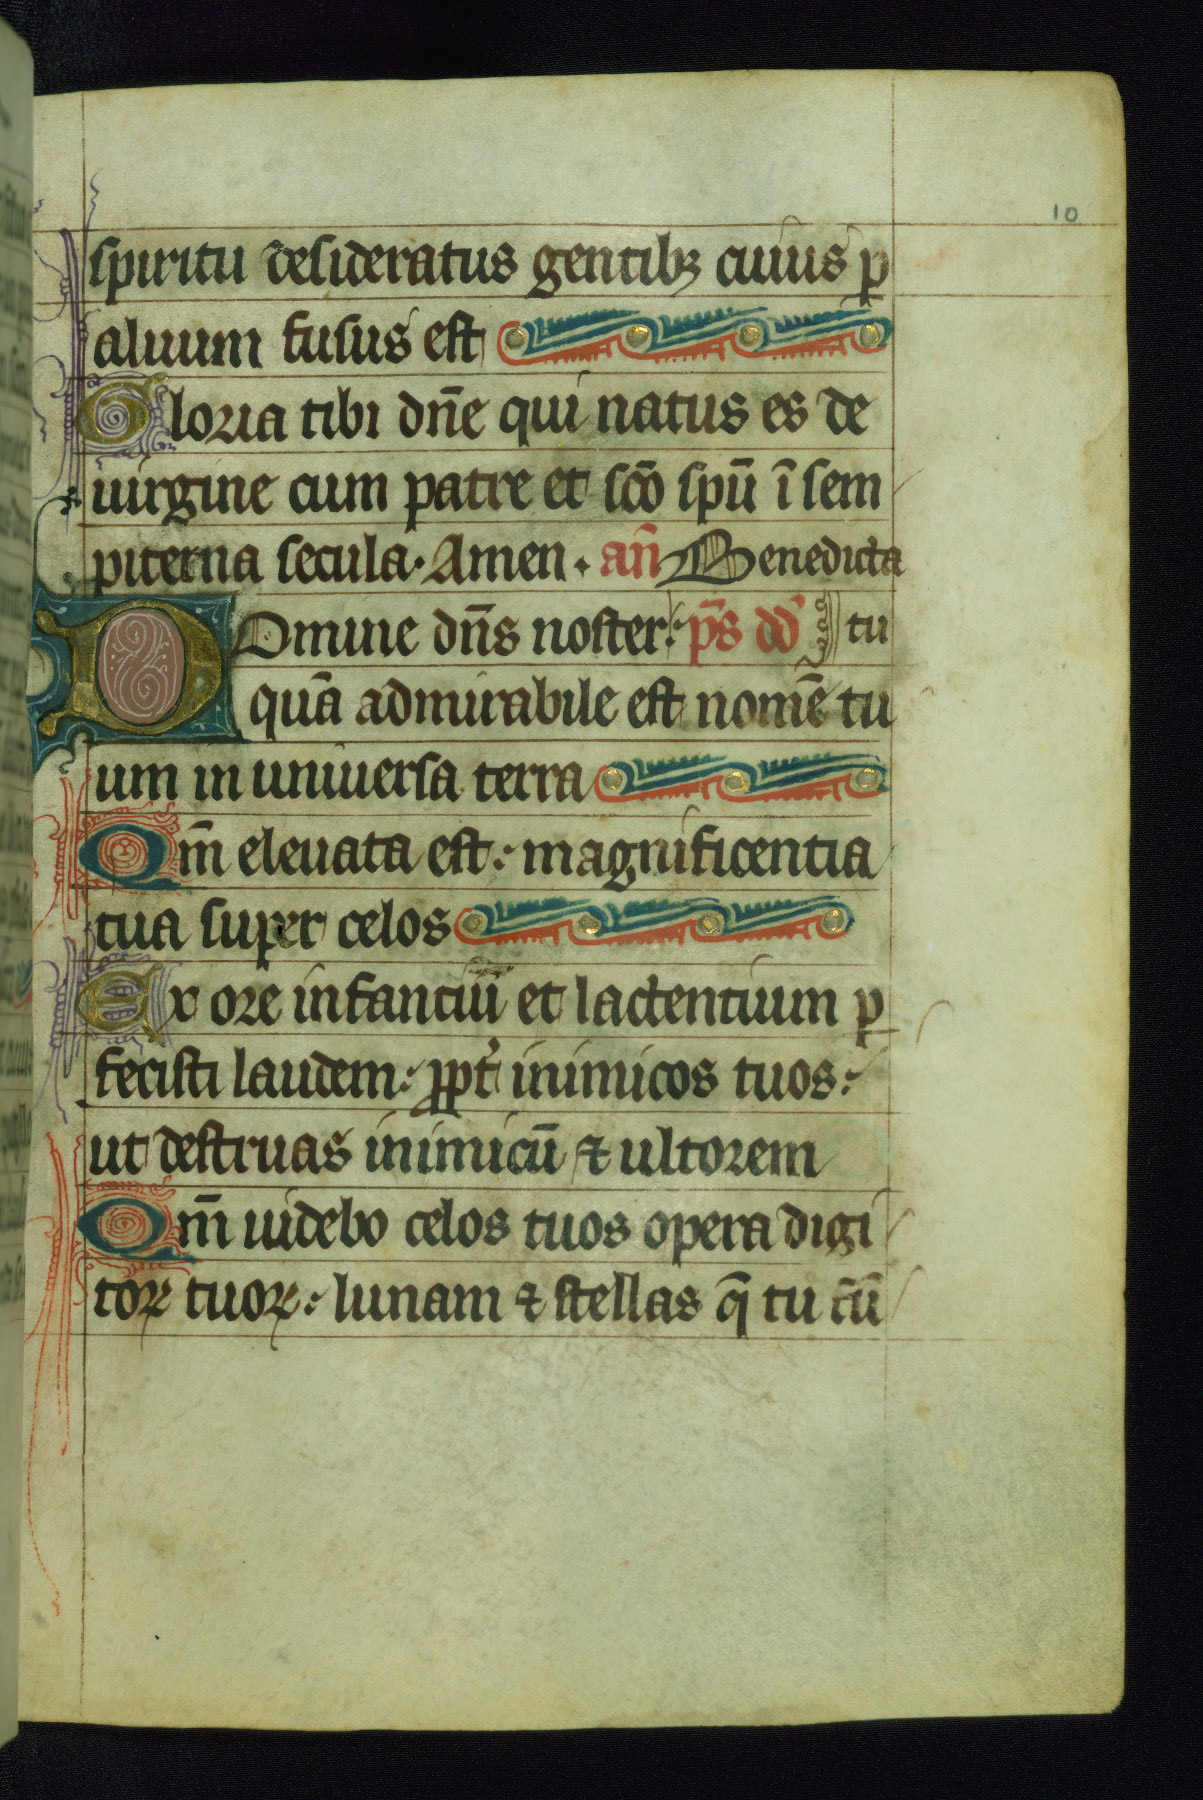 10
spiritu desideratus gentibꝫ cuius ꝑ
aluum fusus est
Gloria tibi dn̄e qui natus es de
uirgine cum patre et sc̄o spū ī sem
piterna secula. Amen. an̄ Benedicta
Domine dn̄s noster: p̄s dd̄ tu
quā admirabile est nomē tu
um in uniuersa terra
Qm̄ eleuata est: magnificentia
tua super celos
Ex ore infantiū et lactentium ꝑ
fecisti laudem: ꝓpt̓ inimicos tuos:
ut destruas inimicū ⁊ ultorem
Qm̄ uidebo celos tuos opera digi
toꝝ tuoꝝ: lunam ⁊ stellas q̄ tu